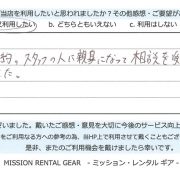 当店を利用したいと思われましたか？その他感想・ご要望が
利用したい b. どちらともいえない c. 利用はしない
約。スタッフの人に親身になって相談を受
た。
いました。戴いたご感想・意見を大切に今後のサービス向上
をご利用になる方への参考の為、当HP上で利用させて戴くこともござ
是非、またのご利用機会を戴けましたら幸いです。
MISSION RENTAL GEAR - ミッション・レンタル ギア -